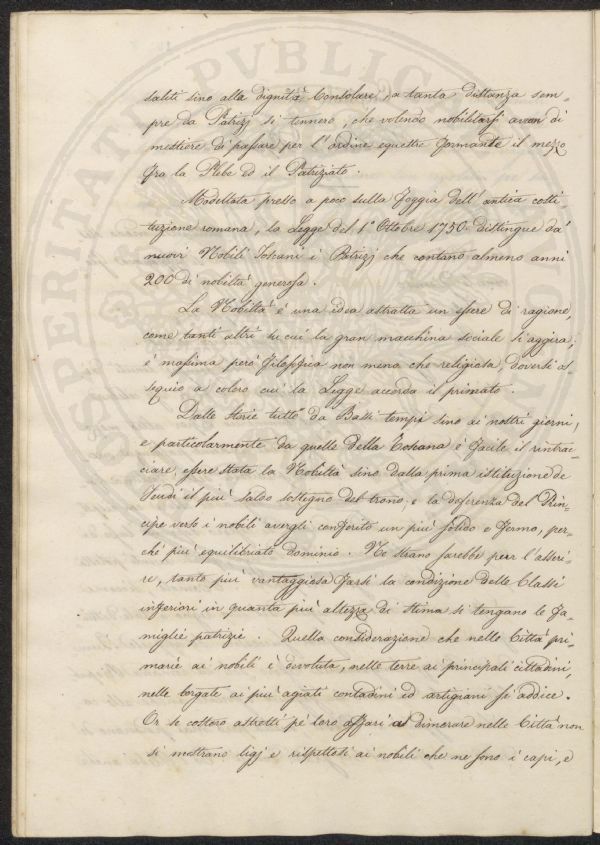 saliti sino alla dignità Consolare, a tanta distanza sem-
pre da Patrizj si tennero, che volendo nobilitarsi avean di
mestiere di passare per l'ordine equestre formante il mezzo
fra la Plebe ed il Patriziato.
Modellata presso a poco sulla foggia dell'antica costi-
tuzione romana, la Legge del 1º Ottobre 1750. distingue da'
nuovi Nobili Toscani i Patrizj che contano almeno anni
200 di nobiltà generosa.
La Nobiltà è una idea astratta un essere di ragione,
come tanti altri su cui la gran macchina sociale si aggira;
è massima però filosofica non meno che religiosa, doversi os
sequio a coloro cui la Legge accorda il primato.
Dalle storie tutte da Bassi tempi sino ai nostri giorni,
e particolarmente da quelle della Toscana è facile il rintrac-
ciare, essere stata la Nobiltà sino dalla prima istituzione de
Feudi il più saldo sostegno del trono, e la deferenza del Prin-
cipe verso i nobili avergli conferito un più solido e fermo, per-
chè più equilibrato dominio. Ne strano sarebbe perr l'asseri-
re, tanto più vantaggiosa farsi la condizione delle Classi
inferiori in quanta più altezza di stima si tengano le fa-
miglie patrizie. Quella considerazione che nelle Città pri-
marie ai nobili è devoluta, nelle terre ai principali cittadini,
nelle borgate ai più agiati contadini ed artigiani si addice.
Or se costoro astretti pe' loro affari a dimorare nelle Città non
si mostrano ligj e rispettosi ai nobili che ne sono i capi, e
PROSPERITATI PVBLICAE